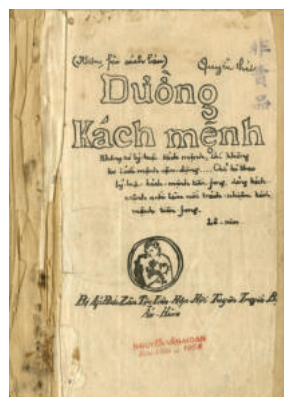 (Không fải sách bán) Quyển thứ
非賣品
Dường
Kách mệnh
Không có lý luận kách mệnh, thì không
có kách mệnh vận-động.... Chỉ có theo
lý luận kách-mệnh tiền fong, đảng kách-
mệnh mới làm nổi trách-nhiệm kách
mệnh tiền fong.
Lê-nin
Bị Áp Bức Dân Tộc Liên Hợp Hội Tuyên Truyền Bộ
Ấn-Hành
NGUYỄN VĂN HOAN